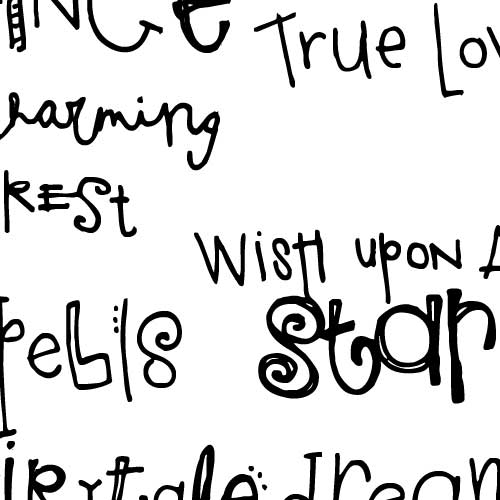 INCE
True Lov
harming
REST
Wish upon A
pells
Star
iRytale dream